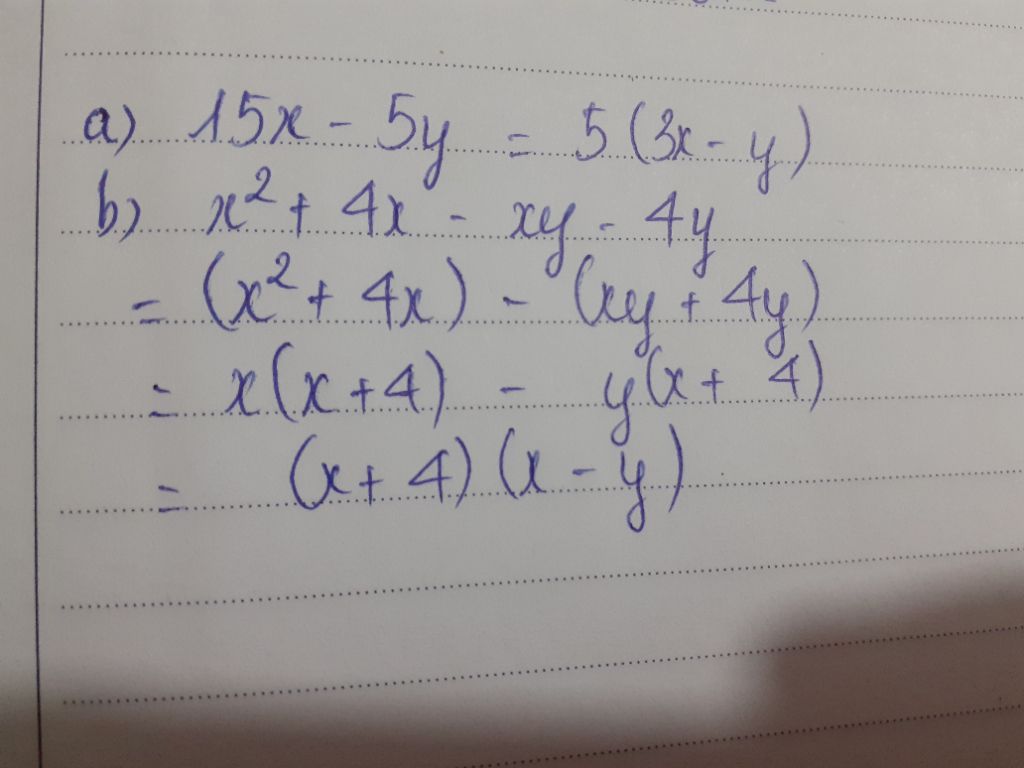 a) 15x - 5y = 5(3x - y)
b) x² + 4x - xy - 4y
= (x² + 4x) - (xy + 4y)
= x(x + 4) - y(x + 4)
= (x + 4)(x - y)